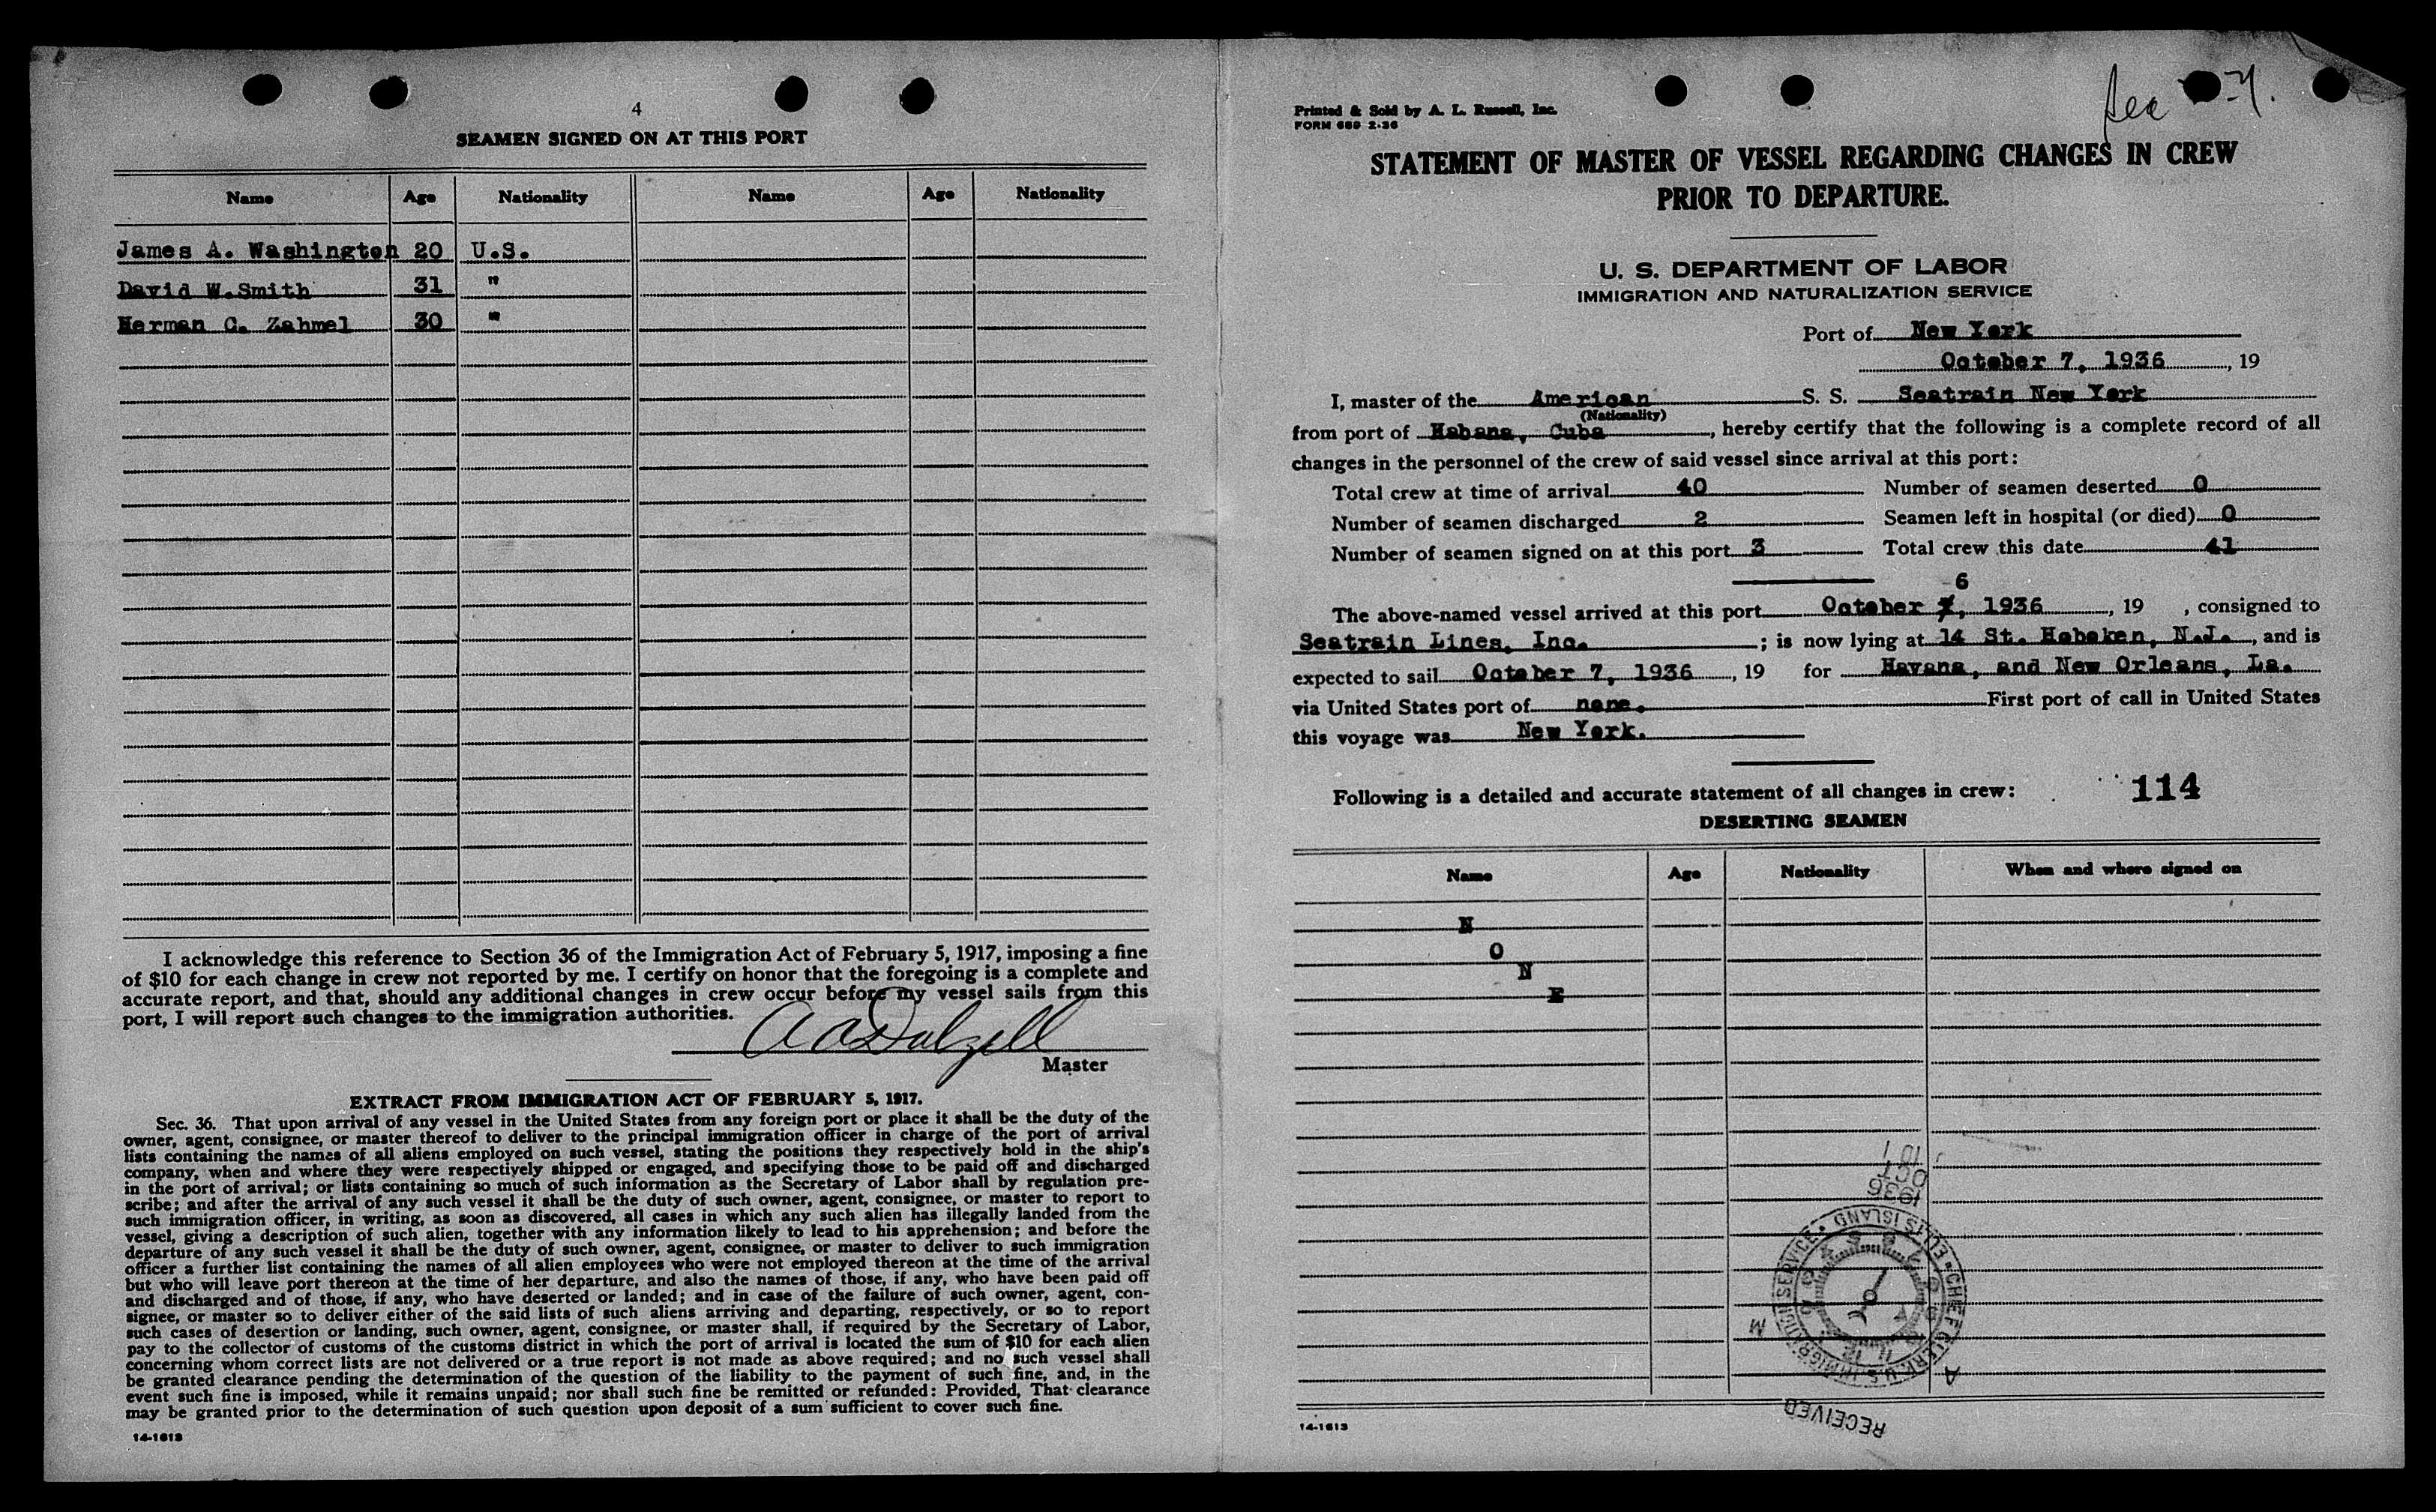 4
SEAMEN SIGNED ON AT THIS PORT
Name Age Nationality Name Age Nationality
James A. Washington 20 U.S.
David W.Smith 31 "
Herman C. Zahmel 30 "
I acknowledge this reference to Section 36 of the Immigration Act of February 5, 1917, imposing a fine
of $10 for each change in crew not reported by me. I certify on honor that the foregoing is a complete and
accurate report, and that, should any additional changes in crew occur before my vessel sails from this
port, I will report such changes to the immigration authorities.
A A Dalzell
Master
EXTRACT FROM IMMIGRATION ACT OF FEBRUARY 5, 1917.
Sec. 36. That upon arrival of any vessel in the United States from any foreign port or place it shall be the duty of the
owner, agent, consignee, or master thereof to deliver to the principal immigration officer in charge of the port of arrival
lists containing the names of all aliens employed on such vessel, stating the positions they respectively hold in the ship's
company, when and where they were respectively shipped or engaged, and specifying those to be paid off and discharged
in the port of arrival; or lists containing so much of such information as the Secretary of Labor shall by regulation pre-
scribe; and after the arrival of any such vessel it shall be the duty of such owner, agent, consignee, or master to report to
such immigration officer, in writing, as soon as discovered, all cases in which any such alien has illegally landed from the
vessel, giving a description of such alien, together with any information likely to lead to his apprehension; and before the
departure of any such vessel it shall be the duty of such owner, agent, consignee, or master to deliver to such immigration
officer a further list containing the names of all alien employees who were not employed thereon at the time of the arrival
but who will leave port thereon at the time of her departure, and also the names of those, if any, who have been paid off
and discharged and of those, if any, who have deserted or landed; and in case of the failure of such owner, agent, con-
signee, or master so to deliver either of the said lists of such aliens arriving and departing, respectively, or so to report
such cases of desertion or landing, such owner, agent, consignee, or master shall, if required by the Secretary of Labor,
pay to the collector of customs of the customs district in which the port of arrival is located the sum of $10 for each alien
concerning whom correct lists are not delivered or a true report is not made as above required; and no such vessel shall
be granted clearance pending the determination of the question of the liability to the payment of such fine, and, in the
event such fine is imposed, while it remains unpaid; nor shall such fine be remitted or refunded: Provided, That clearance
may be granted prior to the determination of such question upon deposit of a sum sufficient to cover such fine.
14-1613
Printed & Sold by A. L. Russell, Inc.
FORM 689 2-36
STATEMENT OF MASTER OF VESSEL REGARDING CHANGES IN CREW
PRIOR TO DEPARTURE.
U. S. DEPARTMENT OF LABOR
IMMIGRATION AND NATURALIZATION SERVICE
Port of New York
October 7, 1936, 19
I, master of the American S. S. Seatrain New York
(Nationality)
from port of Habana, Cuba, hereby certify that the following is a complete record of all
changes in the personnel of the crew of said vessel since arrival at this port:
Total crew at time of arrival 40 Number of seamen deserted 0
Number of seamen discharged 2 Seamen left in hospital (or died) 0
Number of seamen signed on at this port 3 Total crew this date 41
6
The above-named vessel arrived at this port October 7, 1936, 19 , consigned to
Seatrain Lines, Inc. ; is now lying at 14 St. Hoboken, N.J., and is
expected to sail October 7, 1936, 19 for Havana, and New Orleans, La.
via United States port of none. First port of call in United States
this voyage was New York.
Following is a detailed and accurate statement of all changes in crew: 114
DESERTING SEAMEN
Name Age Nationality When and where signed on
N
O
N
E
RECEIVED
CHIEF CLERK U.S. IMMIGRATION SERVICE • ELLIS ISLAND •
A M
1936
OCT
14-1613